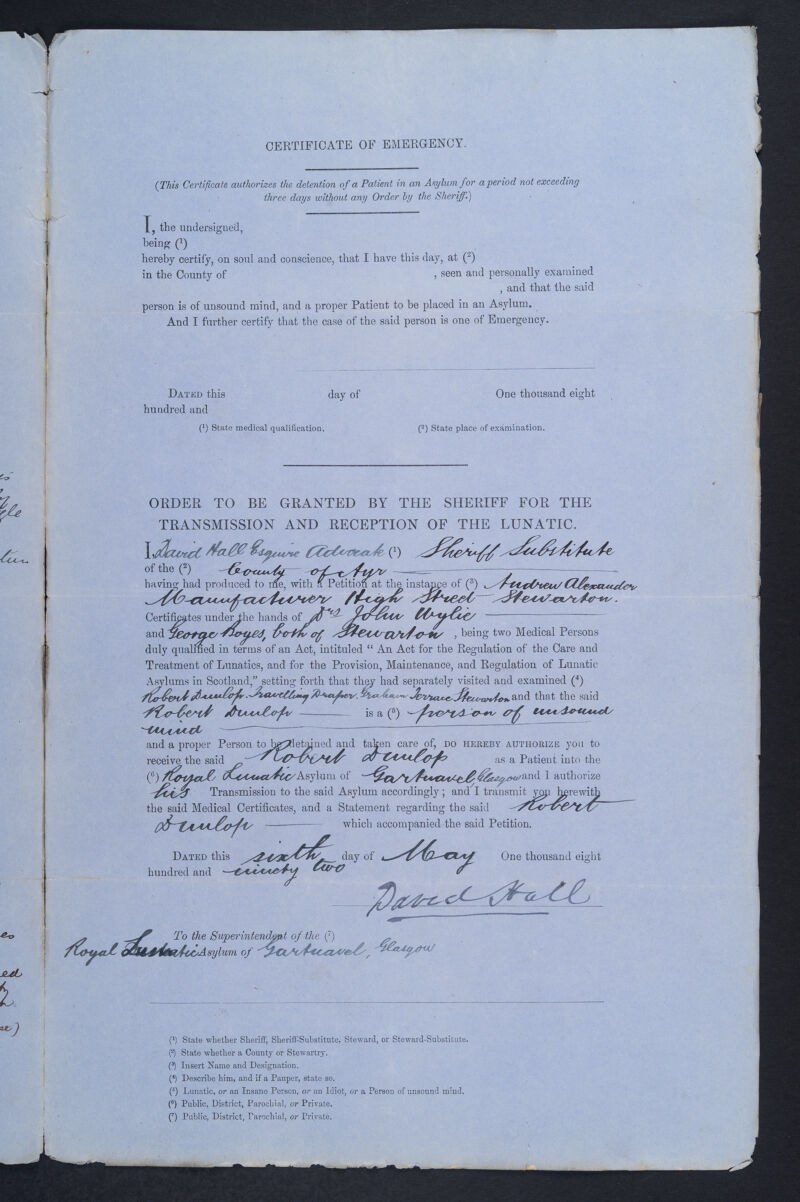 CERTIFICATE OF EMERGENCY.
(This Certificate authorizes the detention of a Patient in an Asylum for a period not exceeding
three days without any Order by the Sheriff.)
I, the undersigned,
being (1)
hereby certify, on soul and conscience, that I have this day, at (2)
in the County of , seen and personally examined
, and that the said
person is of unsound mind, and a proper Patient to be placed in an Asylum.
And I further certify that the case of the said person is one of Emergency.
DATED this day of One thousand eight
hundred and
(1) State medical qualification. (2) State place of examination.
ORDER TO BE GRANTED BY THE SHERIFF FOR THE
TRANSMISSION AND RECEPTION OF THE LUNATIC.
I, David Hall Esquire Advocate (1) Sheriff Substitute
of the (2) County of Ayr
having had produced to me, with a Petition at the instance of (3) Andrew Alexander
Manufacturer High Street Stewarton.
Certificates under the hands of Drs John Wylie
and George Boyes, both of Stewarton, being two Medical Persons
duly qualified in terms of an Act, intituled “ An Act for the Regulation of the Care and
Treatment of Lunatics, and for the Provision, Maintenance, and Regulation of Lunatic
Asylums in Scotland,” setting forth that they had separately visited and examined (4)
Robert Dunlop. Travelling Draper, Graham Terrace Stewarton and that the said
Robert Dunlop is a (5) person of unsound
mind
and a proper Person to be detained and taken care of, DO HEREBY AUTHORIZE you to
receive the said Robert Dunlop as a Patient into the
(6) Royal Lunatic Asylum of Gartnavel, Glasgow and I authorize
his Transmission to the said Asylum accordingly; and I transmit you herewith
the said Medical Certificates, and a Statement regarding the said Robert
Dunlop which accompanied the said Petition.
DATED this sixth day of May One thousand eight
hundred and ninety two
David Hall
To the Superintendent of the (7)
Royal Lunatic Asylum of Gartnavel, Glasgow
(1) State whether Sheriff, Sheriff-Substitute, Steward, or Steward-Substitute.
(2) State whether a County or Stewartry.
(3) Insert Name and Designation.
(4) Describe him, and if a Pauper, state so.
(5) Lunatic, or an Insane Person, or an Idiot, or a Person of unsound mind.
(6) Public, District, Parochial, or Private.
(7) Public, District, Parochial, or Private.